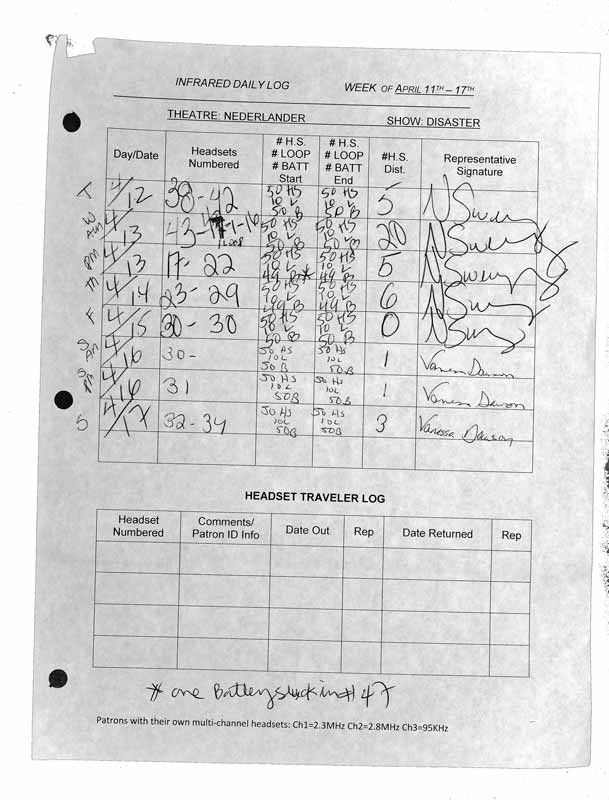 INFRARED DAILY LOG WEEK OF APRIL 11TH – 17TH
THEATRE: NEDERLANDER SHOW: DISASTER
Day/Date Headsets Numbered # H.S. # LOOP # BATT Start # H.S. # LOOP # BATT End #H.S. Dist. Representative Signature
T 4/12 38-42 50 HS 10 L 50 B 50 HS 10 L 50 B 5 N Sweeny
W am 4/13 43- 1-16 LOOP 50 HS 10 L 50 B 50 HS 10 L 50 B 20 N Sweeny
pm 4/13 17-22 50 HS 10 L 49 B* 50 HS 10 L 49 B 5 N Sweeny
Th 4/14 23-29 50 HS 10 L 49 B 50 HS 10 L 49 B 6 N Sweeny
F 4/15 30-30 50 HS 10 L 50 B 50 HS 10 L 50 B 0 N Sweeny
S am 4/16 30- 50 HS 10L 50B 50 HS 10L 50B 1 Vanessa Dawson
S pm 4/16 31 50 HS 10L 50B 50 HS 10L 50B 1 Vanessa Dawson
S 4/17 32-34 50 HS 10L 50B 50 HS 10L 50B 3 Vanessa Dawson
HEADSET TRAVELER LOG
Headset Numbered Comments/ Patron ID Info Date Out Rep Date Returned Rep
* one Battery stuck in # 47
Patrons with their own multi-channel headsets: Ch1=2.3MHz Ch2=2.8MHz Ch3=95KHz